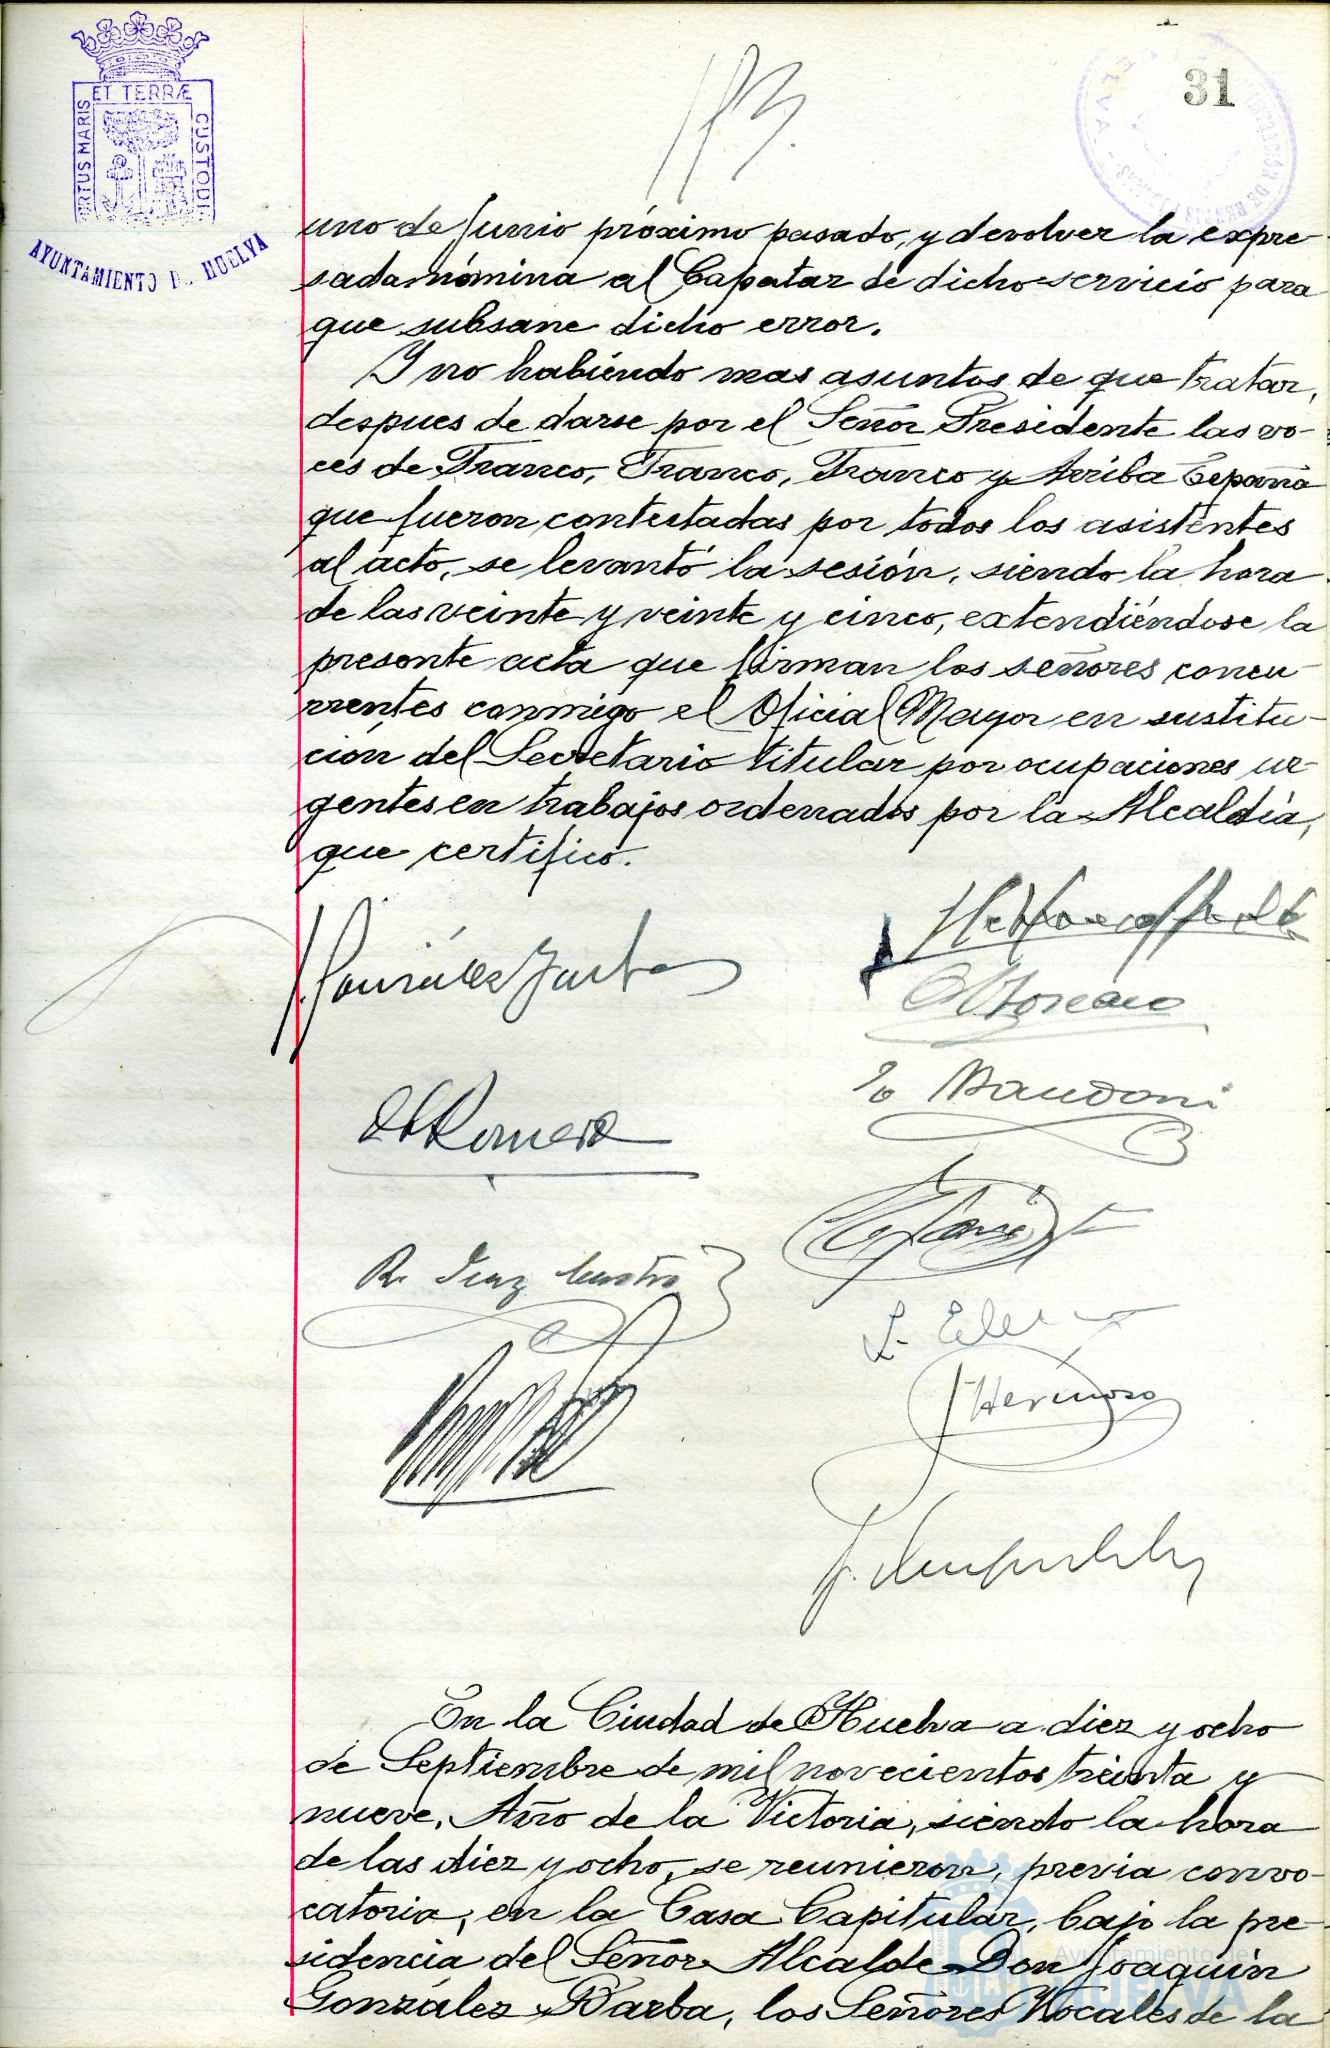 ET TERRÆ
PORTUS MARIS
CUSTODI
AYUNTAMIENTO DE HUELVA
31
uno de Junio próximo pasado, y devolver la expre-
sada nómina al Capataz de dicho servicio para
que subsane dicho error.
Y no habiendo mas asuntos de que tratar,
despues de darse por el Señor Presidente las vo-
ces de Franco, Franco, Franco y Arriba España
que fueron contestadas por todos los asistentes
al acto, se levantó la sesión, siendo la hora
de las veinte y veinte y cinco, extendiéndose la
presente acta que firman los señores concu-
rrentes conmigo el Oficial Mayor en sustitu-
ción del Secretario titular por ocupaciones ur-
gentes en trabajos ordenados por la Alcaldía,
que certifico.
J. González Barba
Romero
R. Diaz
J Hermoso
En la Ciudad de Huelva a diez y ocho
de Septiembre de mil novecientos treinta y
nueve. Año de la Victoria, siendo la hora
de las diez y ocho, se reunieron, previa convo-
catoria, en la Casa Capitular, bajo la pre-
sidencia del Señor Alcalde Don Joaquín
González Barba, los Señores Vocales de la
Ayuntamiento de
HUELVA